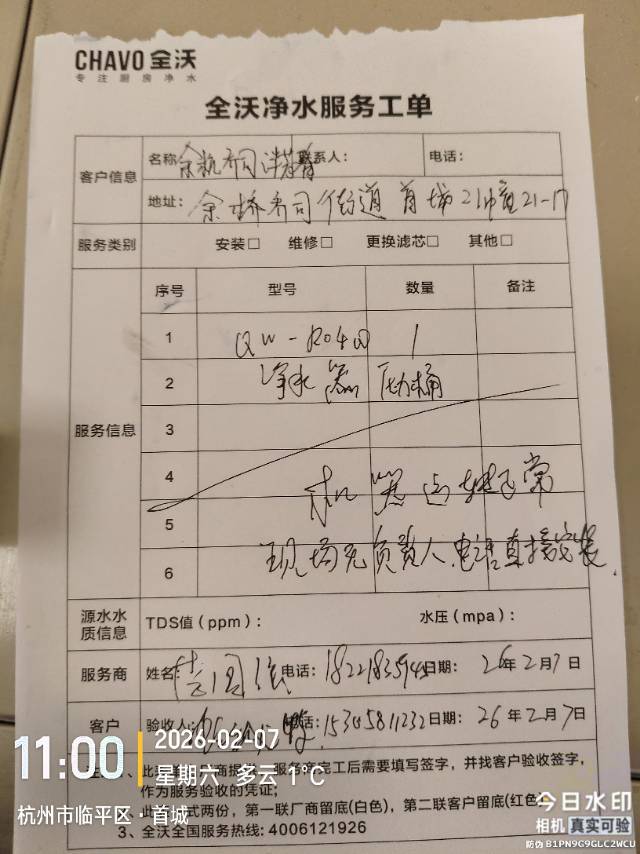 CHAVO 全沃
专注厨房净水
全沃净水服务工单
客户信息 名称: 余杭乔司 联系人: 电话:
地址: 余杭乔司街道首城21幢21-17
服务类别 安装□ 维修□ 更换滤芯□ 其他□
服务信息 序号 型号 数量 备注
1 QW-R04 1
2 净水器压力桶
3
4 机器运转正常
5
6 现场无负责人,电话直接安装
源水水质信息 TDS值(ppm): 水压(mpa):
服务商 姓名: 国强 电话: 1822183594 日期: 26年2月7日
客户 验收人: 电话: 15345811232 日期: 26年2月7日
11:00
2026-02-07
星期六 多云 1℃
杭州市临平区·首城
服务商完工后需要填写签字,并找客户验收签字,
作为服务验收的凭证;
式两份,第一联厂商留底(白色),第二联客户留底(红色)
3、全沃全国服务热线: 4006121926
今日水印
相机 真实可验
防伪 B1PN9G9GLC2WCU